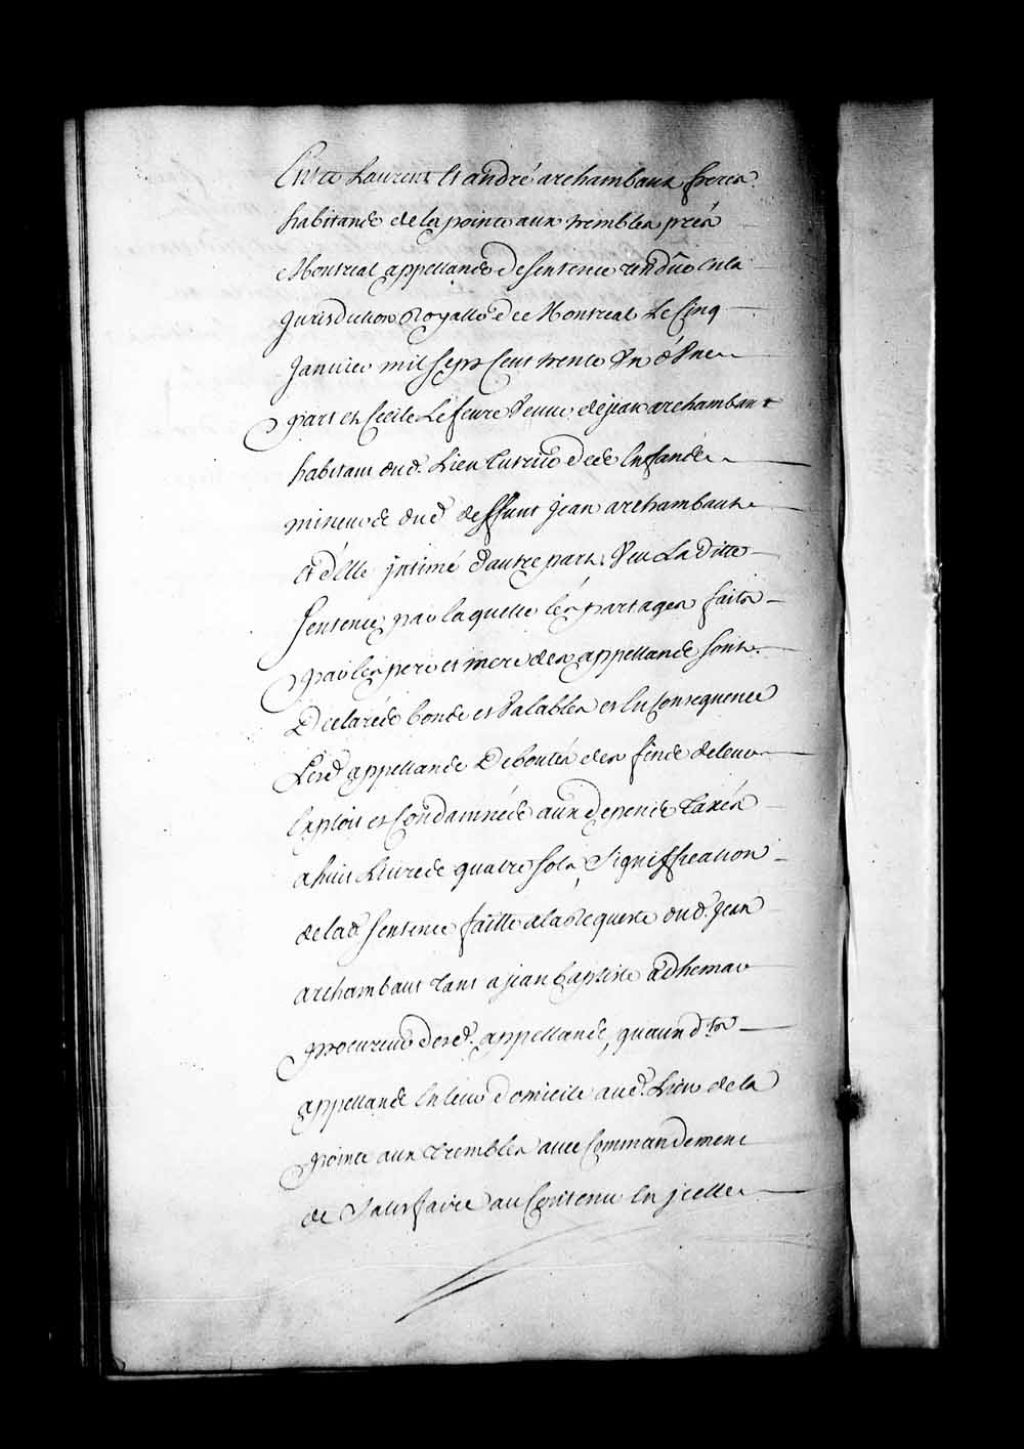 Entre Laurent et andré archambault freres
habitands de la pointe aux trembles prés
Montreal appellands de sentence rendüe en la
Jurisdiction Royalle de Montreal Le Cinq
Janvier mil sept Cent trente Un d'Une
part et Cecile Lefevre Veuve de jean archambault
habitant dud. Lieu tutrice de de Enfands
mineurs dud deffunt jean archambault
et d'Elle jntimé d'autre part, Veu La ditte
Sentence, par laquelle les partages faits
par les pere et mere des appellands sont
Declarés bons et Valables et En Consequence
Lesd appellands Deboutés des fins de leur
Exploit et Condamnéds aux depends taxés
a huit Livres quatre sols, Signiffication
de lad Sentence faitte a la Requeste dud. Jean
archambault tant a jean baptiste adhemar
procureur desd. appellands, qu'auxd.
appellands En leur domicile aud. Lieu de la
pointe aux trembles avec Commandement
de Satisfaire au Contenu En jcelle